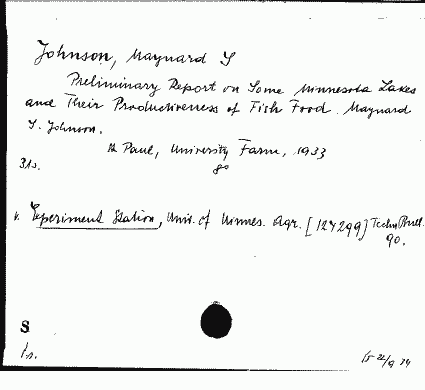 Johnson, Maynard S
Preliminary Report on Some Minnesota Lakes
and Their Productiveness of Fish Food. Maynard
S. Johnson.
St Paul, University Farm, 1933
31s. 8o
v. Experiment Station, Univ. of Minnes. Agr. [127299] Techn. Bull.
90.
S
1s.